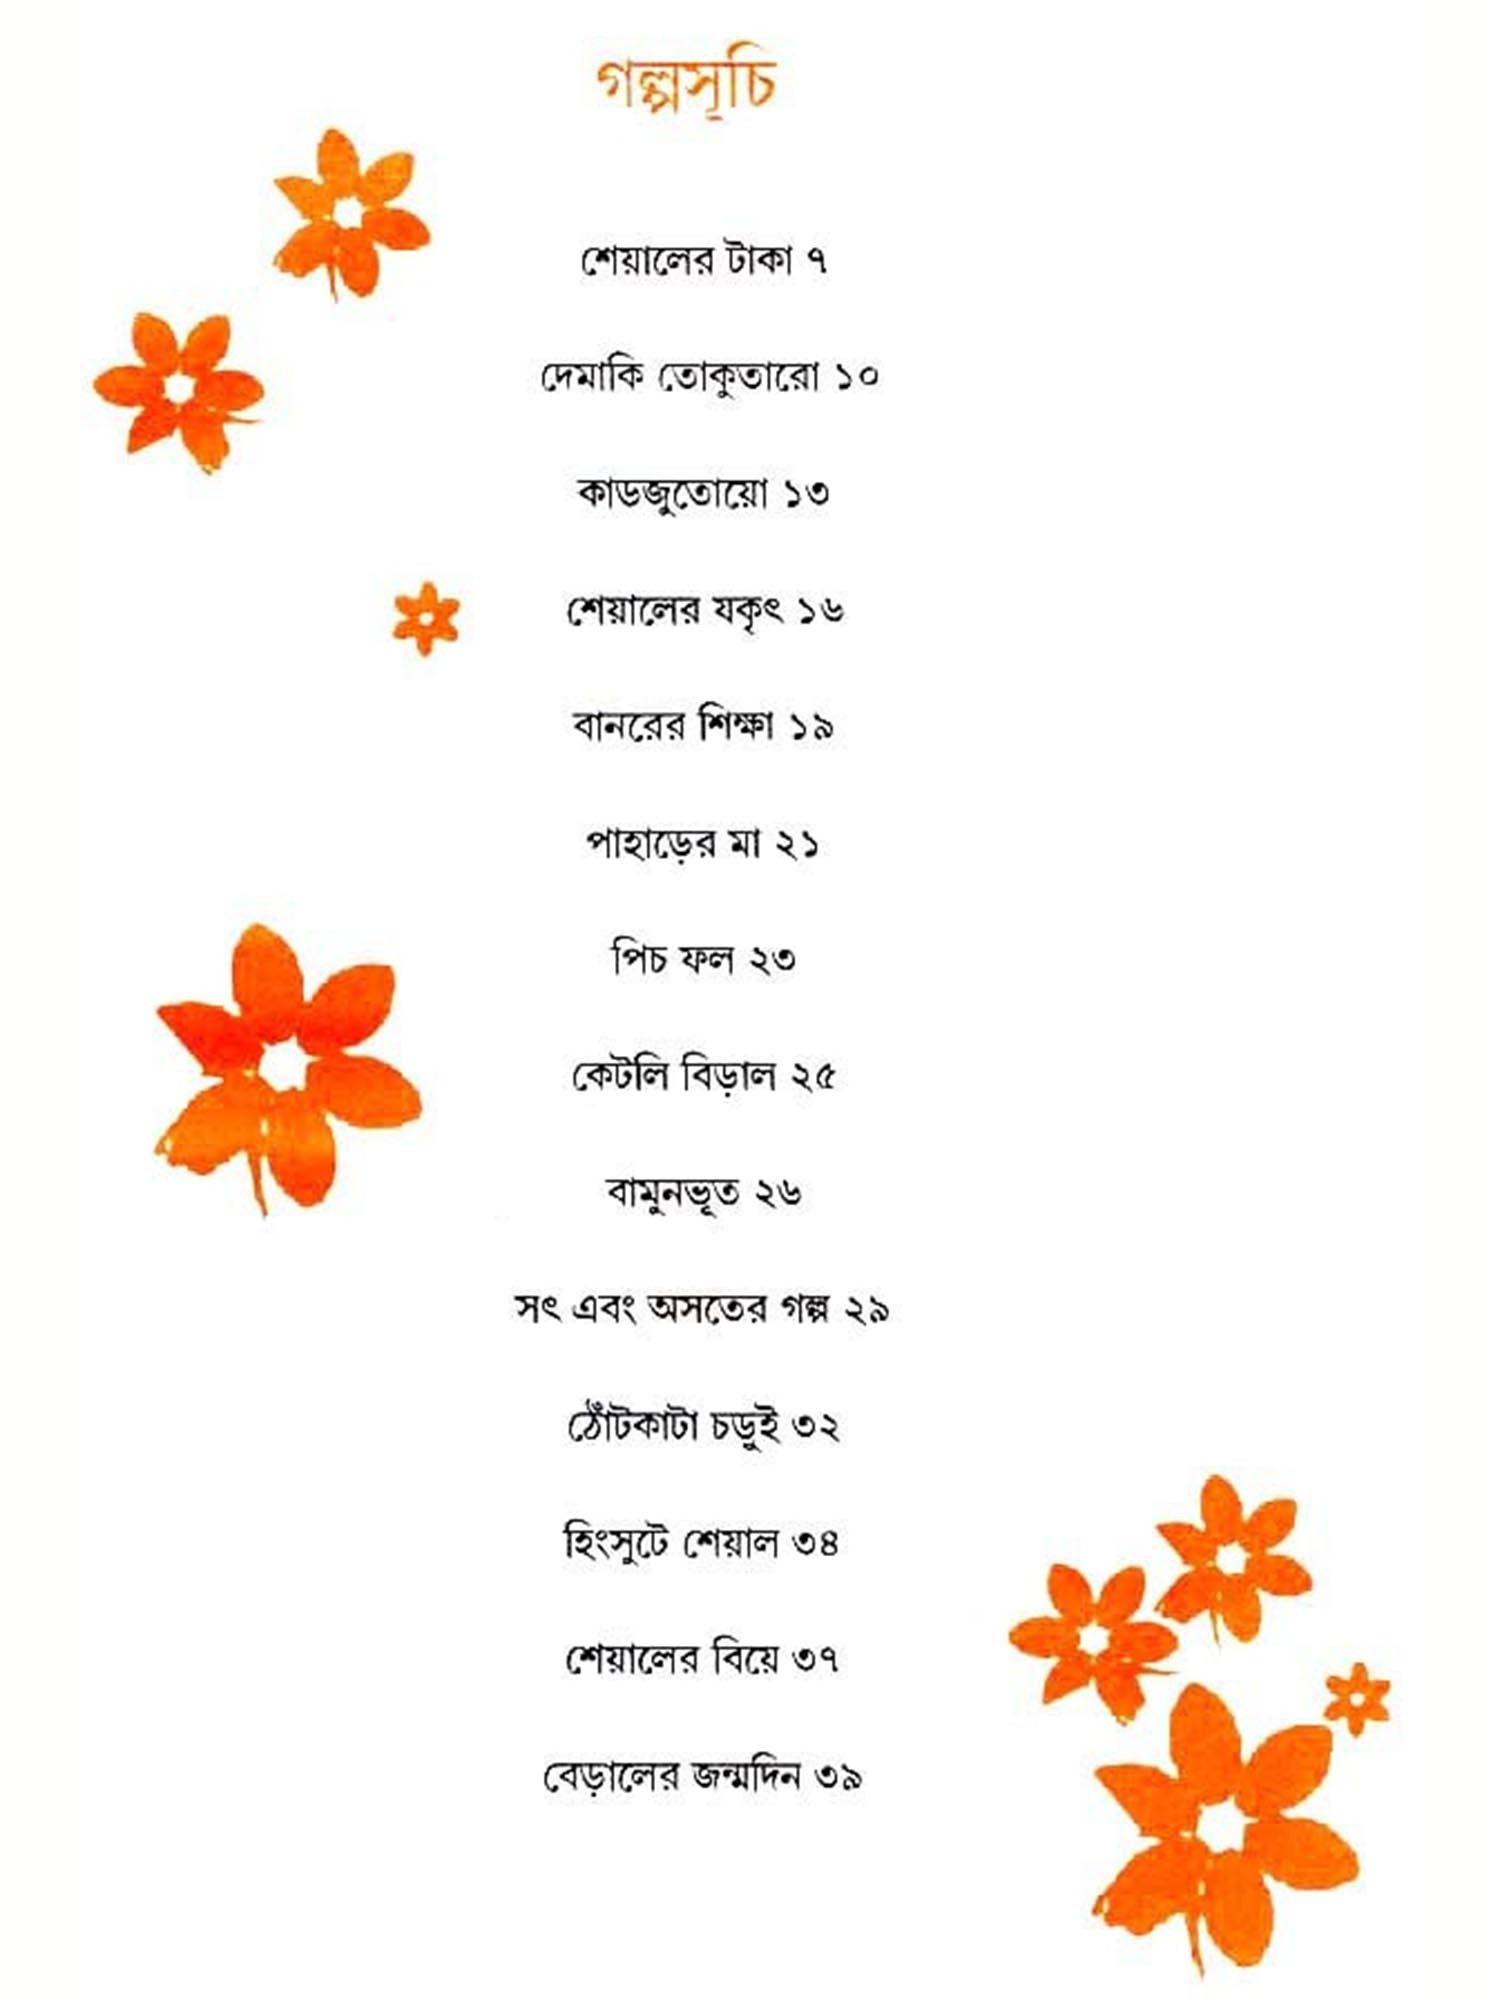 গল্পসূচি
শেয়ালের টাকা ৭
দেমাকি তোকুতারো ১০
কাডজুতোয়ো ১৩
শেয়ালের যকৃৎ ১৬
বানরের শিক্ষা ১৯
পাহাড়ের মা ২১
পিচ ফল ২৩
কেটলি বিড়াল ২৫
বামুনভূত ২৬
সৎ এবং অসতের গল্প ২৯
ঠোঁটকাটা চড়ুই ৩২
হিংসুটে শেয়াল ৩৪
শেয়ালের বিয়ে ৩৭
বেড়ালের জন্মদিন ৩৯